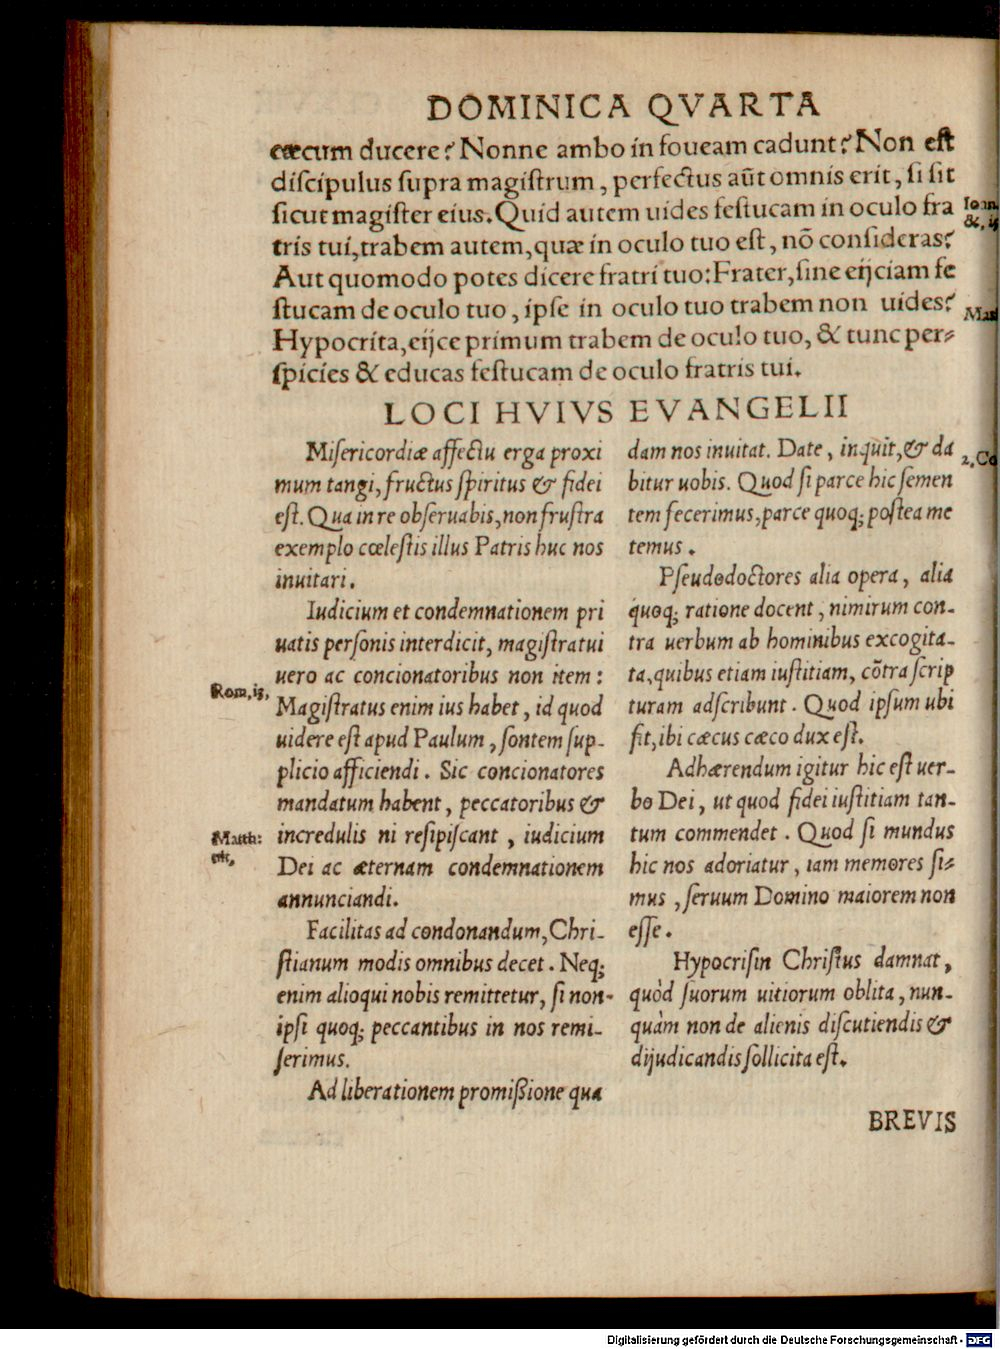 DOMINICA QVARTA
cæcum ducere? Nonne ambo in foueam cadunt? Non est
discipulus supra magistrum, perfectus aūt omnis erit, si sit
sicut magister eius. Quid autem uides festucam in oculo fra
tris tui, trabem autem, quæ in oculo tuo est, nō consideras?
Aut quomodo potes dicere fratri tuo: Frater, sine eijciam fe
stucam de oculo tuo, ipse in oculo tuo trabem non uides?
Hypocrita, eijce primum trabem de oculo tuo, & tunc per-
spicies & educas festucam de oculo fratris tui.
Ioan.
LOCI HVIVS EVANGELII
Misericordiæ affectu erga proxi
mum tangi, fructus spiritus & fidei
est. Qua in re obseruabis, non frustra
exemplo cœlestis illus Patris huc nos
inuitari.
Iudicium et condemnationem pri
uatis personis interdicit, magistratui
uero ac concionatoribus non item:
Rom, 13,
Magistratus enim ius habet, id quod
uidere est apud Paulum, sontem sup-
plicio afficiendi. Sic concionatores
mandatum habent, peccatoribus &
Matth:
incredulis ni resipiscant, iudicium
Dei ac æternam condemnationem
annunciandi.
Facilitas ad condonandum, Chri-
stianum modis omnibus decet. Neq;
enim alioqui nobis remittetur, si non-
ipsi quoq; peccantibus in nos remi-
serimus.
Ad liberationem promißione qua
dam nos inuitat. Date, inquit, & da
2, Co
bitur uobis. Quod si parce hic semen
tem fecerimus, parce quoq; postea me
temus.
Pseudodoctores alia opera, alia
quoq; ratione docent, nimirum con-
tra uerbum ab hominibus excogita-
ta, quibus etiam iustitiam, cōtra scrip
turam adscribunt. Quod ipsum ubi
fit, ibi cæcus cæco dux est.
Adhærendum igitur hic est uer-
bo Dei, ut quod fidei iustitiam tan-
tum commendet. Quod si mundus
hic nos adoriatur, iam memores si-
mus, seruum Domino maiorem non
esse.
Hypocrisin Christus damnat,
quòd suorum uitiorum oblita, nun-
quàm non de alienis discutiendis &
dijudicandis sollicita est.
BREVIS
Digitalisierung gefördert durch die Deutsche Forschungsgemeinschaft - DFG